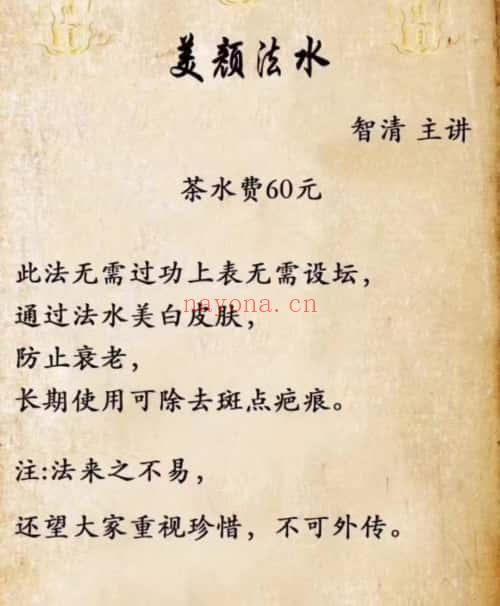 美颜法水
智清 主讲
茶水费60元
此法无需过功上表无需设坛，
通过法水美白皮肤，
nayona.cn
防止衰老，
长期使用可除去斑点疤痕。
注:法来之不易，
还望大家重视珍惜，不可外传。